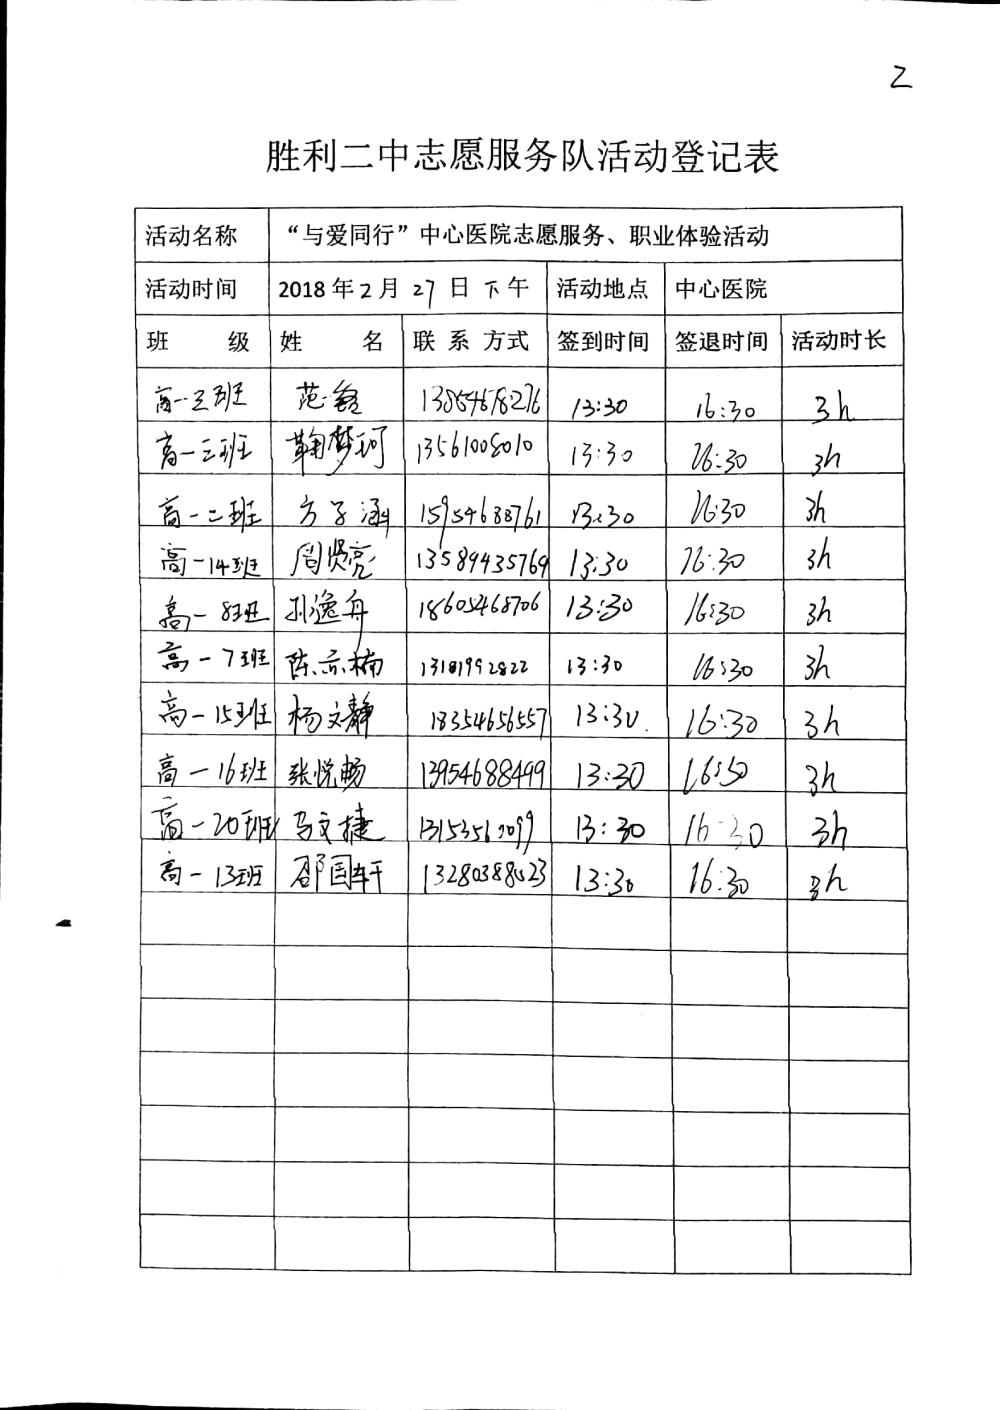 2
胜利二中志愿服务队活动登记表
活动名称 “与爱同行”中心医院志愿服务、职业体验活动
活动时间 2018年2月27日下午 活动地点 中心医院
班 级 姓 名 联系方式 签到时间 签退时间 活动时长
高一三班 范鑫 13854678276 13:30 16:30 3h
高一三班 鞠梦珂 13561008010 13:30 16:30 3h
高一二班 方子涵 15954688761 13:30 16:30 3h
高一14班 周贤亮 13589435769 13:30 16:30 3h
高一8班 孙逸舟 18605468706 13:30 16:30 3h
高一7班 陈亦楠 13181992822 13:30 16:30 3h
高一15班 杨文静 18354656557 13:30 16:30 3h
高一16班 张悦畅 13954688499 13:30 16:30 3h
高一20班 马文捷 13:30 16:30 3h
高一13班 邵国轩 13:30 16:30 3h